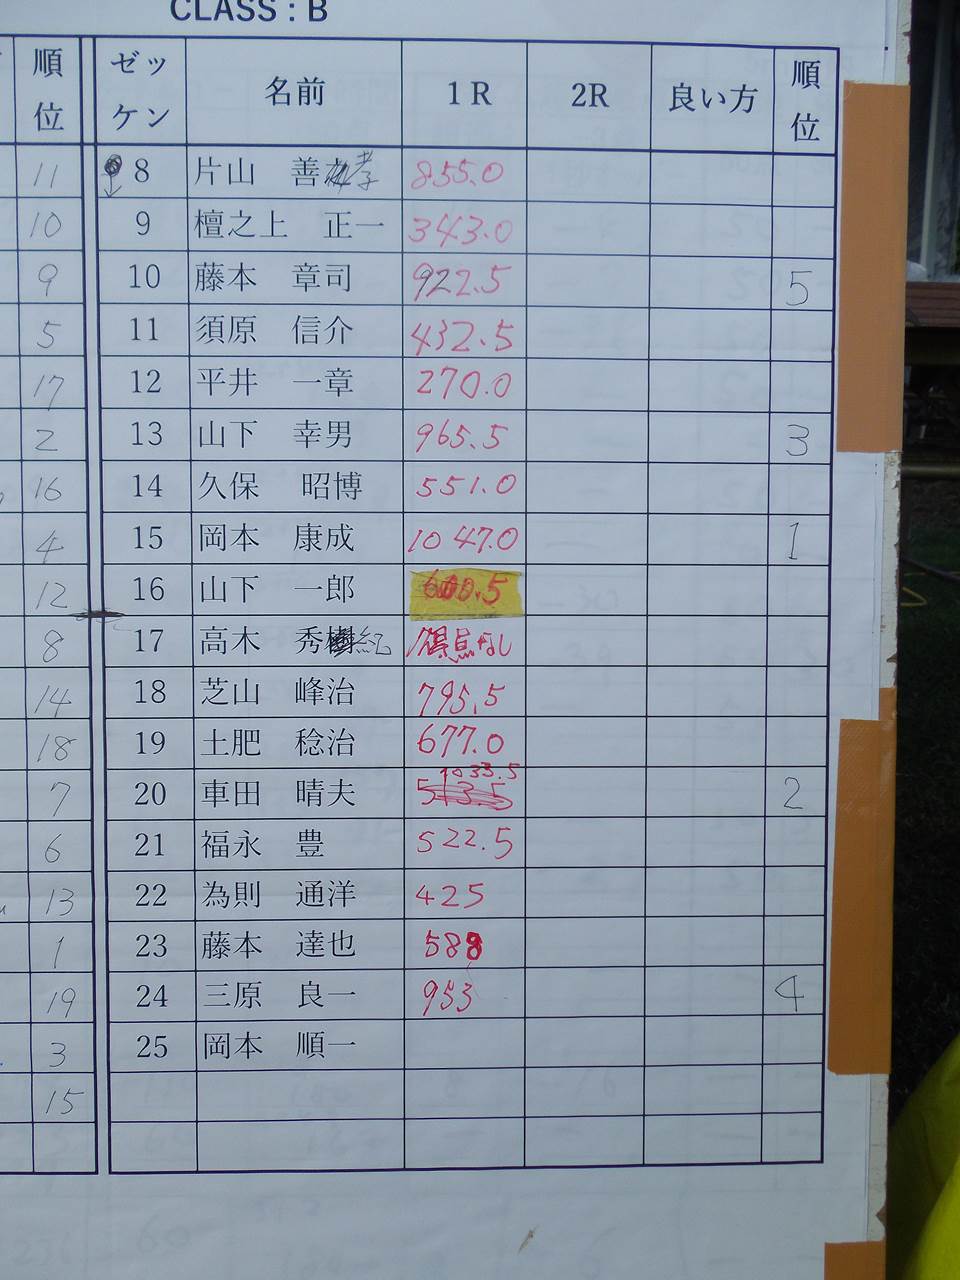 CLASS : B
順位 ゼッケン 名前 1R 2R 良い方 順位
11 8 片山 善孝 855.0
10 9 檀之上 正一 343.0
9 10 藤本 章司 922.5 5
5 11 須原 信介 432.5
17 12 平井 一章 270.0
2 13 山下 幸男 965.5 3
16 14 久保 昭博 551.0
4 15 岡本 康成 1047.0 1
12 16 山下 一郎
8 17 高木 秀紀 得点なし
14 18 芝山 峰治 795.5
18 19 土肥 稔治 677.0
7 20 車田 晴夫 1033.5 2
6 21 福永 豊 522.5
13 22 為則 通洋 425
1 23 藤本 達也 588
19 24 三原 良一 953 4
3 25 岡本 順一
15